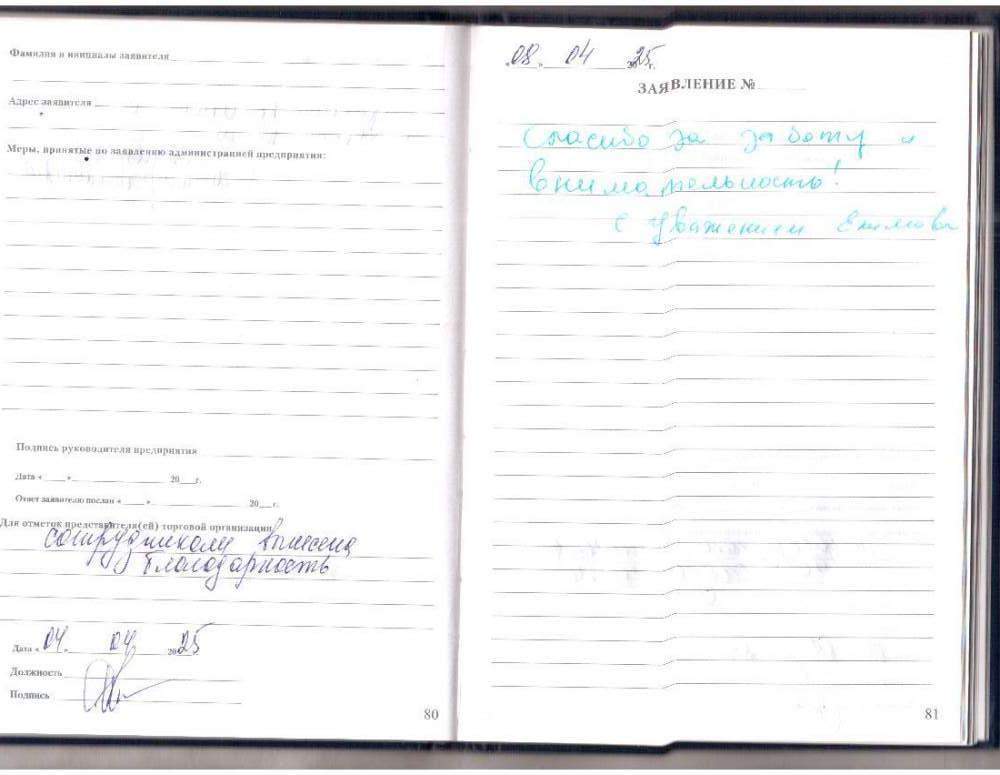 Фамилия и инициалы заявителя
Адрес заявителя
Меры, принятые по заявлению администрацией предприятия:
Подпись руководителя предприятия
Дата « » 20 г.
Ответ заявителю послан « » 20 г.
Для отметок представителя(ей) торговой организации
сотрудникам вынесена
благодарность
Дата « 04. 04 2025
Должность
Подпись
80
«08 » 04 2025г.
ЗАЯВЛЕНИЕ №
Спасибо за заботу и
внимательность!
С уважением
81